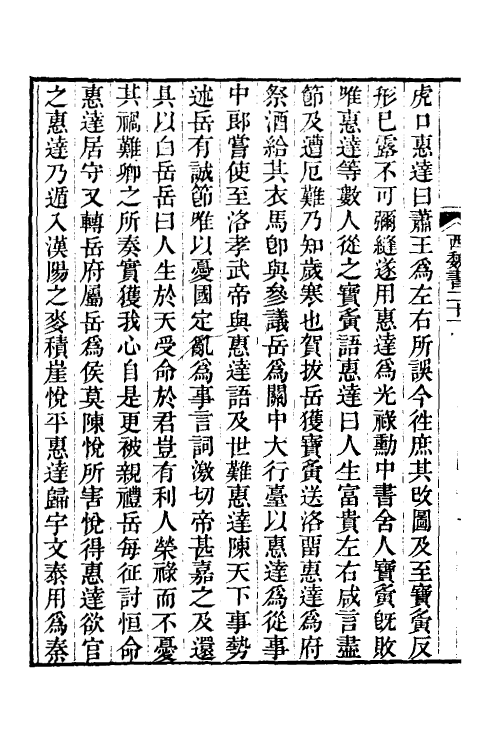 虎口惠達曰蕭王爲左右所誤今徃庶其攺圖及至寶夤反
形已露不可彌縫遂用惠達爲光祿勳中書舍人寶夤旣敗
唯惠達等數人從之寶夤語惠達曰人生富貴左右咸言盡
節及遭厄難乃知歲寒也賀拔岳獲寶夤送洛畱惠達爲府
祭酒給其衣馬卽與參議岳爲關中大行臺以惠達爲從事
中郎嘗使至洛孝武帝與惠達語及世難惠達陳天下事勢
述岳有誠節唯以憂國定亂爲事言詞激切帝甚嘉之及還
具以白岳岳曰人生於天受命於君豈有利人榮祿而不憂
其禍難卿之所奏實獲我心自是更被親禮岳每征討恒命
惠達居守又轉岳府屬岳爲侯莫陳悅所害悅得惠達欲官
之惠達乃遁入漢陽之麥積崖悅平惠達歸宇文泰用爲秦
西魏書二十